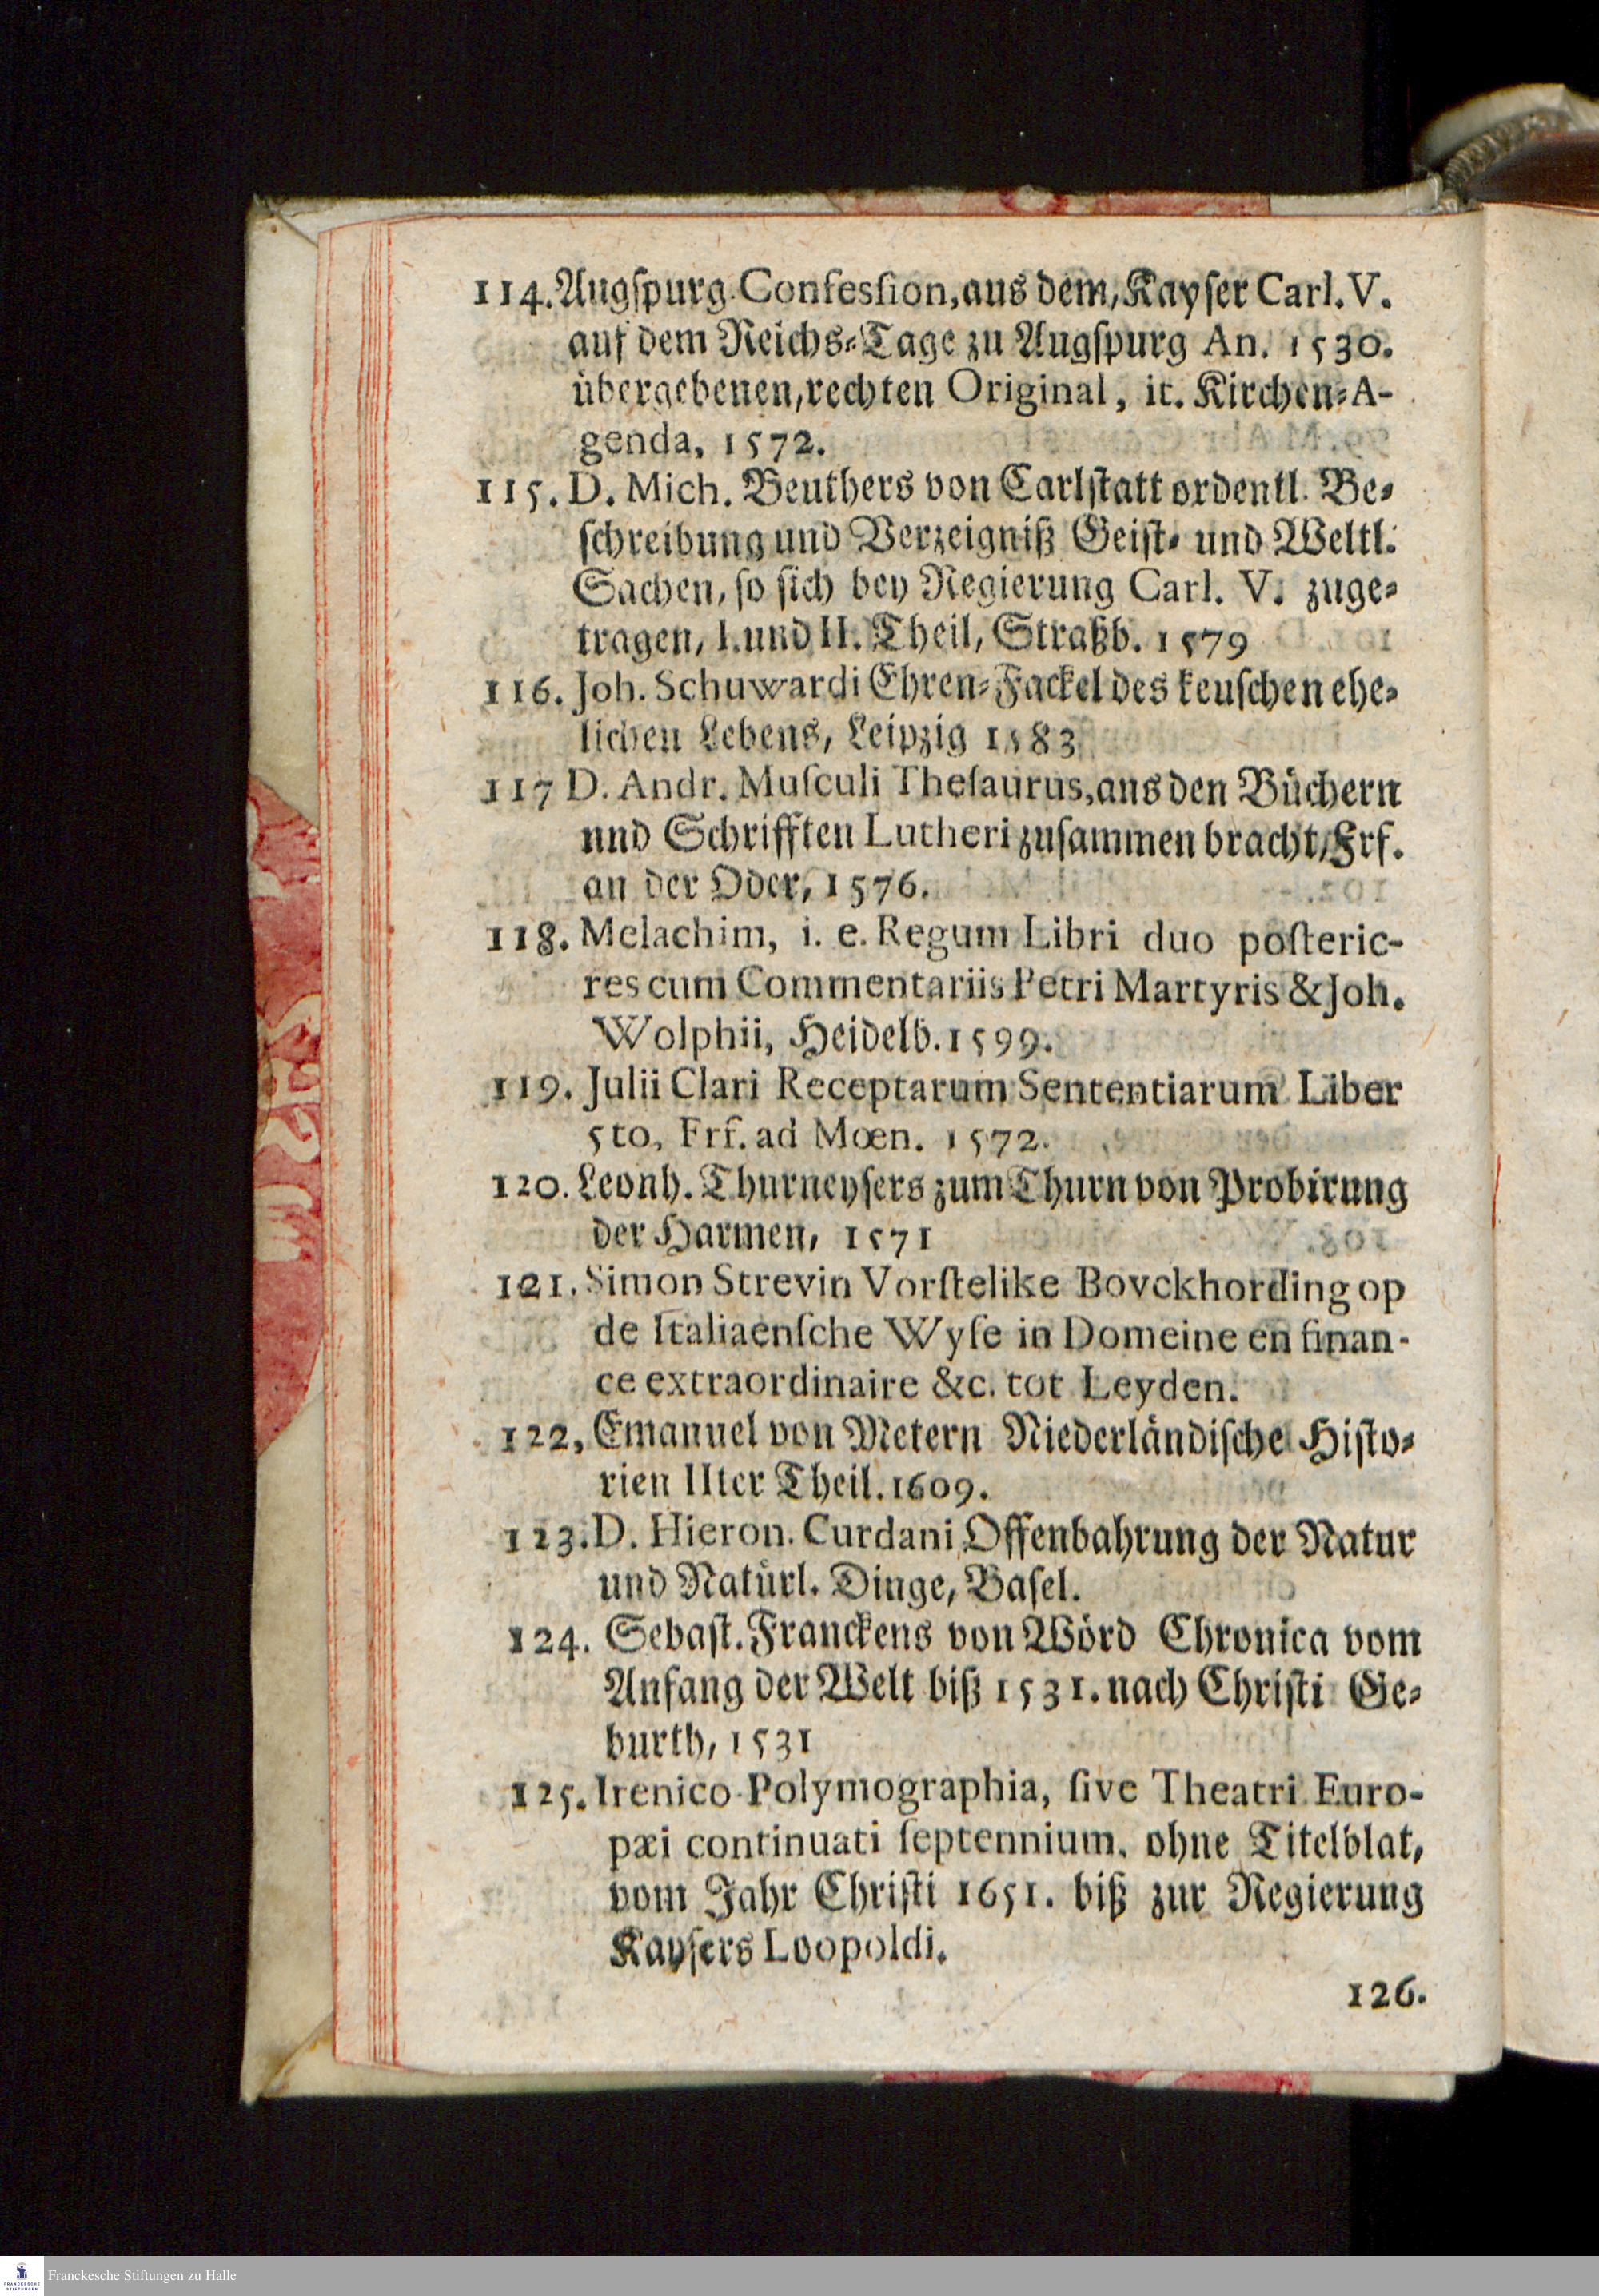 114. Augſpurg. Confesſion, aus dem, Kayſer Carl. V.
auf dem Reichs-Tage zu Augſpurg An. 1530.
übergebenen, rechten Original, it. Kirchen-A-
genda, 1572.
115. D. Mich. Beuthers von Carlſtatt ordentl. Be-
ſchreibung und Verzeigniß Geiſt- und Weltl.
Sachen, ſo ſich bey Regierung Carl. V. zuge-
tragen, I. und II. Theil, Straßb. 1579
116. Joh. Schuwardi Ehren-Fackel des keuſchen ehe-
lichen Lebens, Leipzig 1583
117 D. Andr. Muſculi Theſaurus, aus den Büchern
und Schrifften Lutheri zuſammen bracht, Frf.
an der Oder, 1576.
118. Melachim, i. e. Regum Libri duo poſteric-
res cum Commentariis Petri Martyris & Joh.
Wolphii, Heidelb. 1599.
119. Julii Clari Receptarum Sententiarum Liber
5to, Frf. ad Mœn. 1572.
120. Leonh. Thurneyſers zum Thurn von Probirung
der Harmen, 1571
121. Simon Strevin Vorſtelike Bovckhording op
de Italiaenſche Wyſe in Domeine en finan-
ce extraordinaire &c. tot Leyden.
122, Emanuel von Metern Niederländiſche Hiſto-
rien IIter Theil. 1609.
123. D. Hieron. Curdani Offenbahrung der Natur
und Natürl. Dinge, Baſel.
124. Sebaſt. Franckens von Wörd Chronica vom
Anfang der Welt biß 1531. nach Chriſti Ge-
burth, 1531
125. Irenico-Polymographia, ſive Theatri Euro-
pæi continuati ſeptennium, ohne Titelblat,
vom Jahr Chriſti 1651. biß zur Regierung
Kayſers Loopoldi.
126.
Franckesche Stiftungen zu Halle